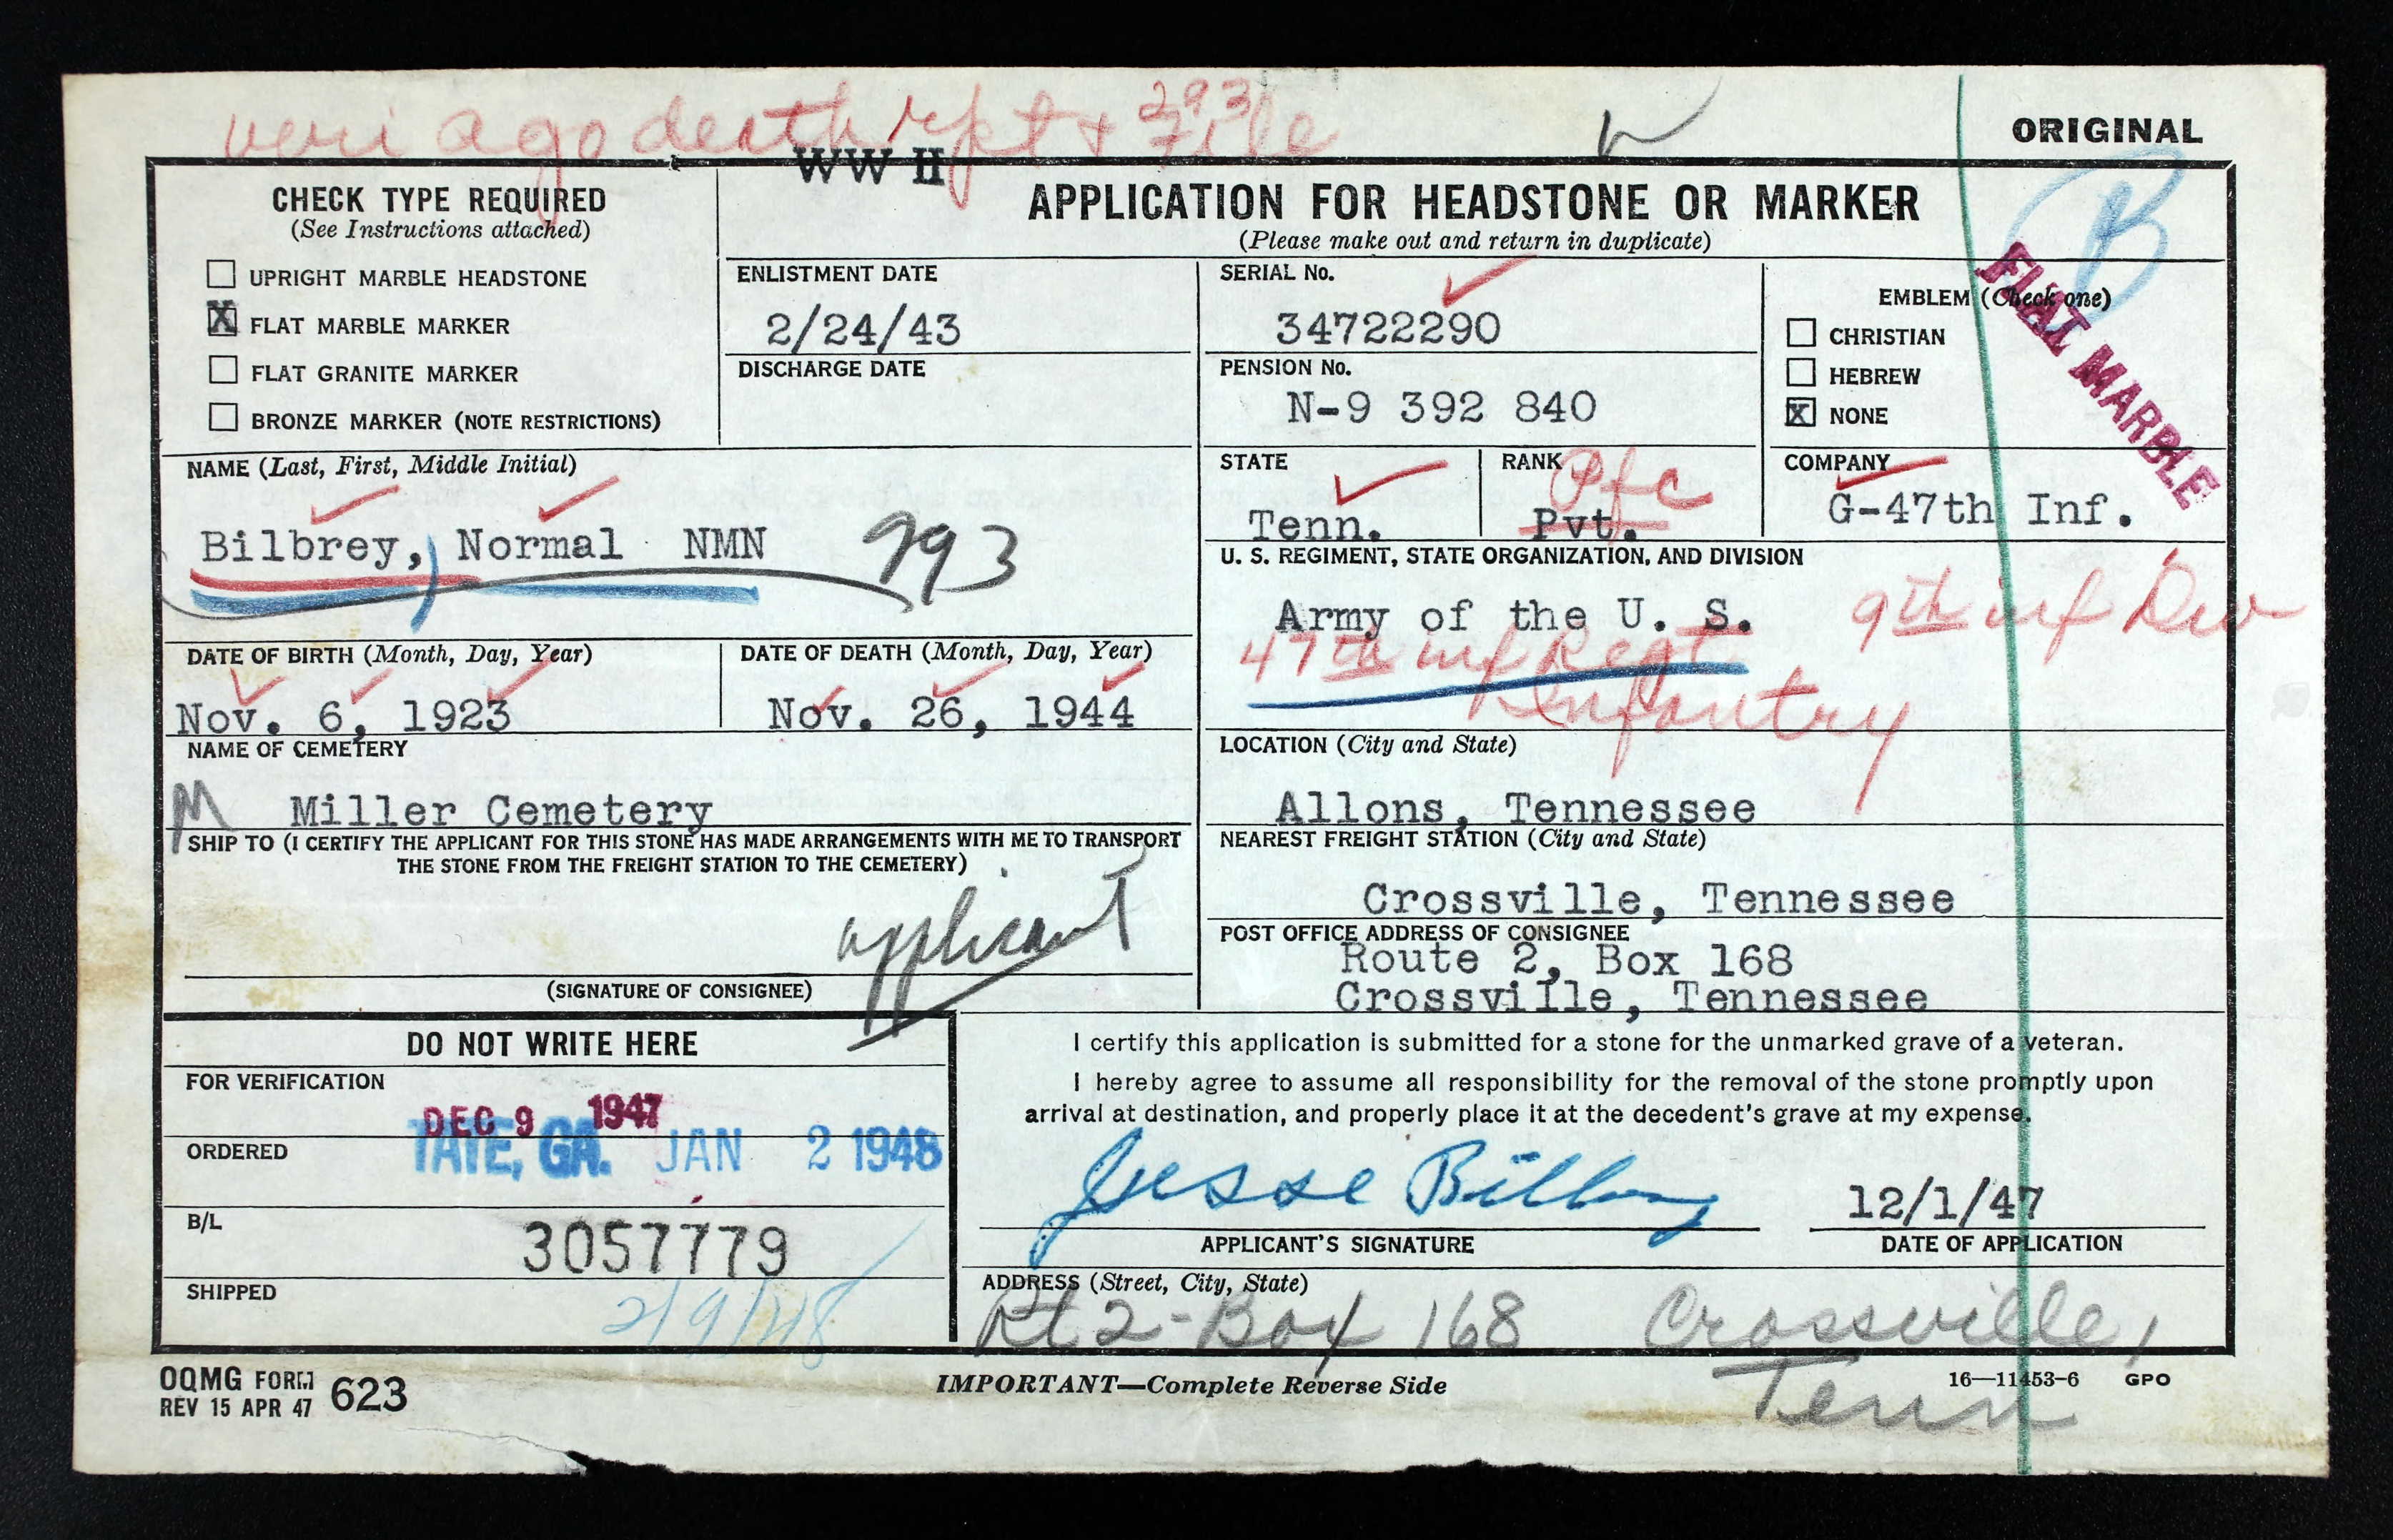 veri ago death rpt + 293 File
ORIGINAL
WW II
CHECK TYPE REQUIRED
(See Instructions attached)
UPRIGHT MARBLE HEADSTONE
X FLAT MARBLE MARKER
FLAT GRANITE MARKER
BRONZE MARKER (NOTE RESTRICTIONS)
APPLICATION FOR HEADSTONE OR MARKER
(Please make out and return in duplicate)
ENLISTMENT DATE
2/24/43
DISCHARGE DATE
SERIAL No.
34722290
PENSION No.
N-9 392 840
B
EMBLEM (Check one)
CHRISTIAN
HEBREW
X NONE
FLAT MARBLE
NAME (Last, First, Middle Initial)
Bilbrey, Normal NMN 293
STATE
Tenn.
RANK
Pfc
Pvt.
COMPANY
G-47th Inf.
U. S. REGIMENT, STATE ORGANIZATION, AND DIVISION
Army of the U. S. 9th inf Div
47th inf Regt
Infantry
DATE OF BIRTH (Month, Day, Year)
Nov. 6, 1923
DATE OF DEATH (Month, Day, Year)
Nov. 26, 1944
NAME OF CEMETERY
M Miller Cemetery
LOCATION (City and State)
Allons, Tennessee
SHIP TO (I CERTIFY THE APPLICANT FOR THIS STONE HAS MADE ARRANGEMENTS WITH ME TO TRANSPORT
THE STONE FROM THE FREIGHT STATION TO THE CEMETERY)
applicant
(SIGNATURE OF CONSIGNEE)
NEAREST FREIGHT STATION (City and State)
Crossville, Tennessee
POST OFFICE ADDRESS OF CONSIGNEE
Route 2, Box 168
Crossville, Tennessee
DO NOT WRITE HERE
FOR VERIFICATION
DEC 9 1947
ORDERED
TATE, GA. JAN 2 1948
B/L
3057779
SHIPPED
2/9/48
I certify this application is submitted for a stone for the unmarked grave of a veteran.
I hereby agree to assume all responsibility for the removal of the stone promptly upon
arrival at destination, and properly place it at the decedent's grave at my expense.
Jesse Bilbrey
APPLICANT'S SIGNATURE
12/1/47
DATE OF APPLICATION
ADDRESS (Street, City, State)
Rt 2-Box 168 Crossville,
Tenn
OQMG FORM 623
REV 15 APR 47
IMPORTANT—Complete Reverse Side
16—11453-6 GPO